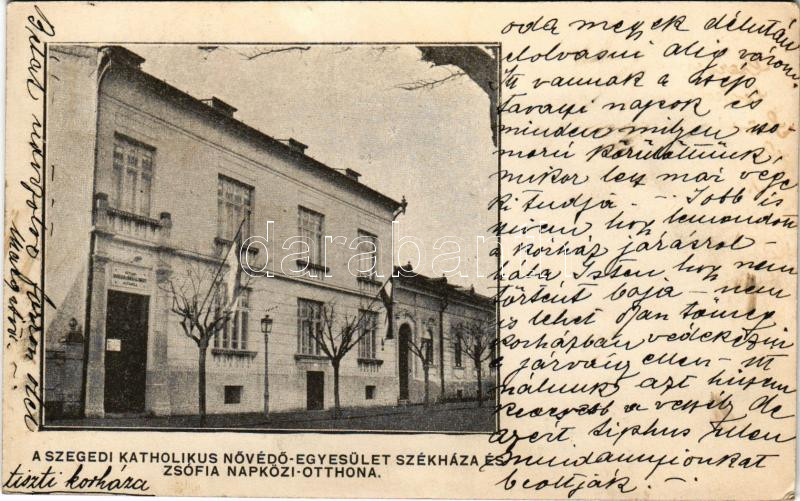 oda megyek délután
elolvasni alig várom.
Itt vannak a szép
tavaszi napok és
minden milyen szo-
morú körülöttünk,
mikor lesz már vége
ki tudja. — Jobb is
hogy lemondtam
a kórház járásról —
hála Isten hogy nem
történt baja — nem
is lehet olyan tömeg
kórházban védekezni
a járvány ellen — itt
nálunk azt hiszem
kevesebb a veszély de
azért tiphus ellen
mindannyionkat
beoltják. —
A SZEGEDI KATHOLIKUS NŐVÉDŐ-EGYESÜLET SZÉKHÁZA ÉS
ZSÓFIA NAPKÖZI-OTTHONA.
tiszti korháza
darabanth.com